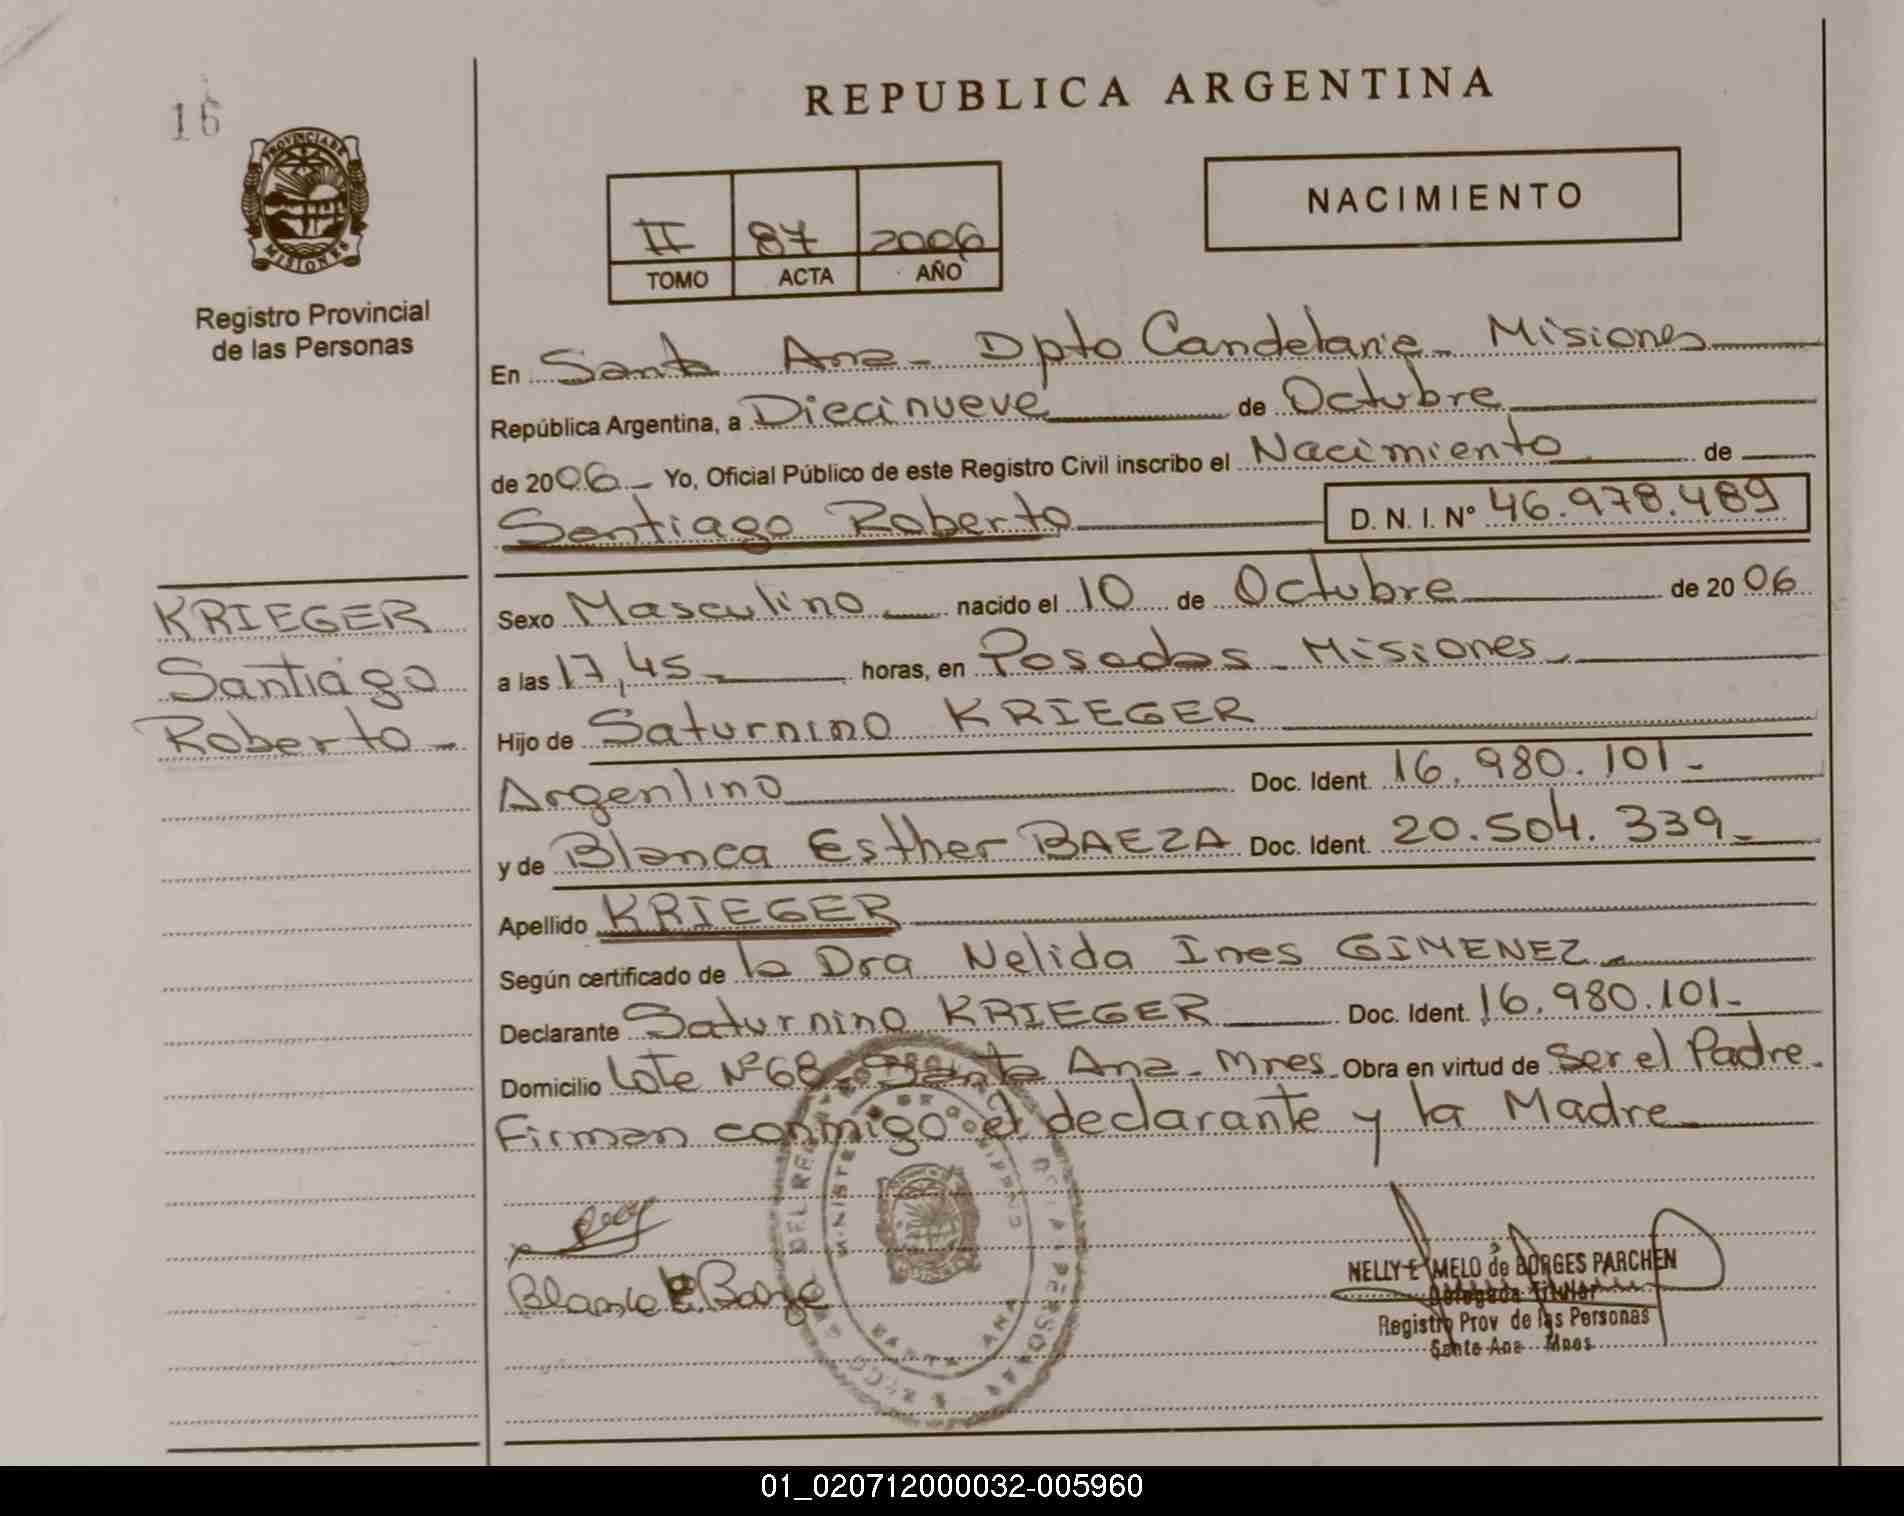 16
PROVINCIA DE
MISIONES
Registro Provincial
de las Personas
REPUBLICA ARGENTINA
NACIMIENTO
II 87 2006
TOMO ACTA AÑO
En Santa Ana - Dpto Candelaria - Misiones
República Argentina, a Diecinueve de Octubre
de 2006 - Yo, Oficial Público de este Registro Civil inscribo el Nacimiento de
Santiago Roberto D. N. I. Nº 46.978.489
KRIEGER
Santiago
Roberto -
Sexo Masculino nacido el 10 de Octubre de 2006
a las 17,45 horas, en Posadas - Misiones
Hijo de Saturnino KRIEGER
Argentino Doc. Ident. 16.980.101.-
y de Blanca Esther BAEZA Doc. Ident. 20.504.339.-
Apellido KRIEGER
Según certificado de la Dra Nelida Ines GIMENEZ
Declarante Saturnino KRIEGER Doc. Ident. 16.980.101.-
Domicilio Lote Nº 68 - Santa Ana - Mnes. Obra en virtud de Ser el Padre.
Firman conmigo el declarante y la Madre
Blanca E Baeza
SANTA ANA
NELLY E MELO de BORGES PARCHEN
Delegada Titular
Registro Prov de las Personas
Santa Ana Mnes
01_020712000032-005960